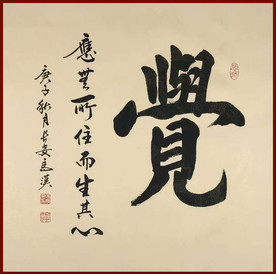 覺
應無所住而生其心
庚子秋月長安馬漢